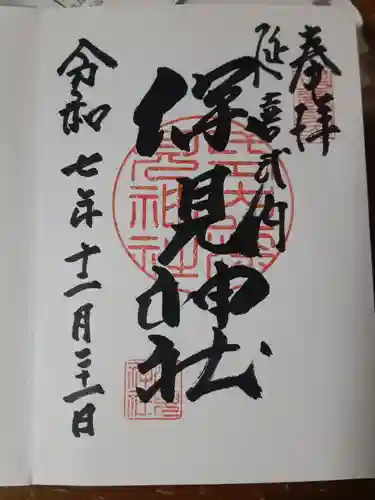 奉拝
延喜式内
保見神社
令和七年十一月二十一日